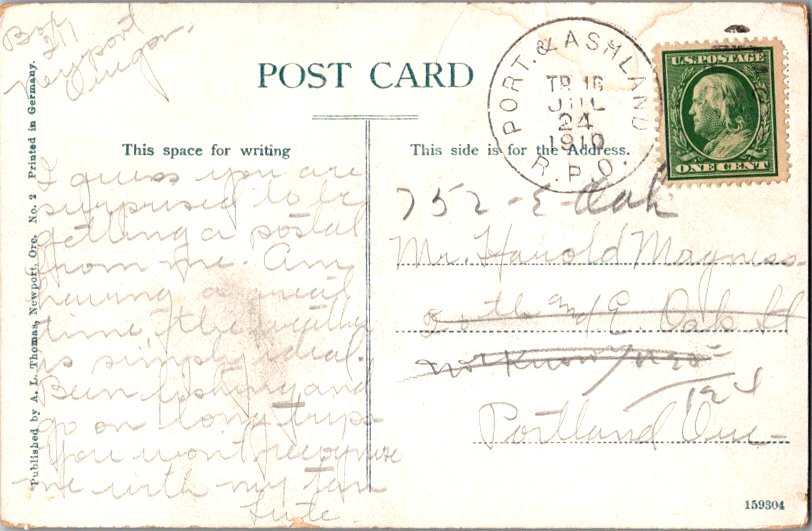 Box 241
Newport
Oregon.
POST CARD
PORT. & ASHLAND
TR. 16
JUL
24
1910
R.P.O.
U.S. POSTAGE
ONE CENT
This space for writing
I guess you are
surprised to be
getting a postal
from me. Am
having a great
time, the weather
is simply ideal.
Been fishing and
go on long trips
You won't recognize
me with my tan
This side is for the Address.
752 - E - Oak
Mr. Harold Magness.
and E. Oak St
Not Known
124
Portland Ore
Published by A. L. Thomas, Newport, Ore. No. 2 Printed in Germany.
159304